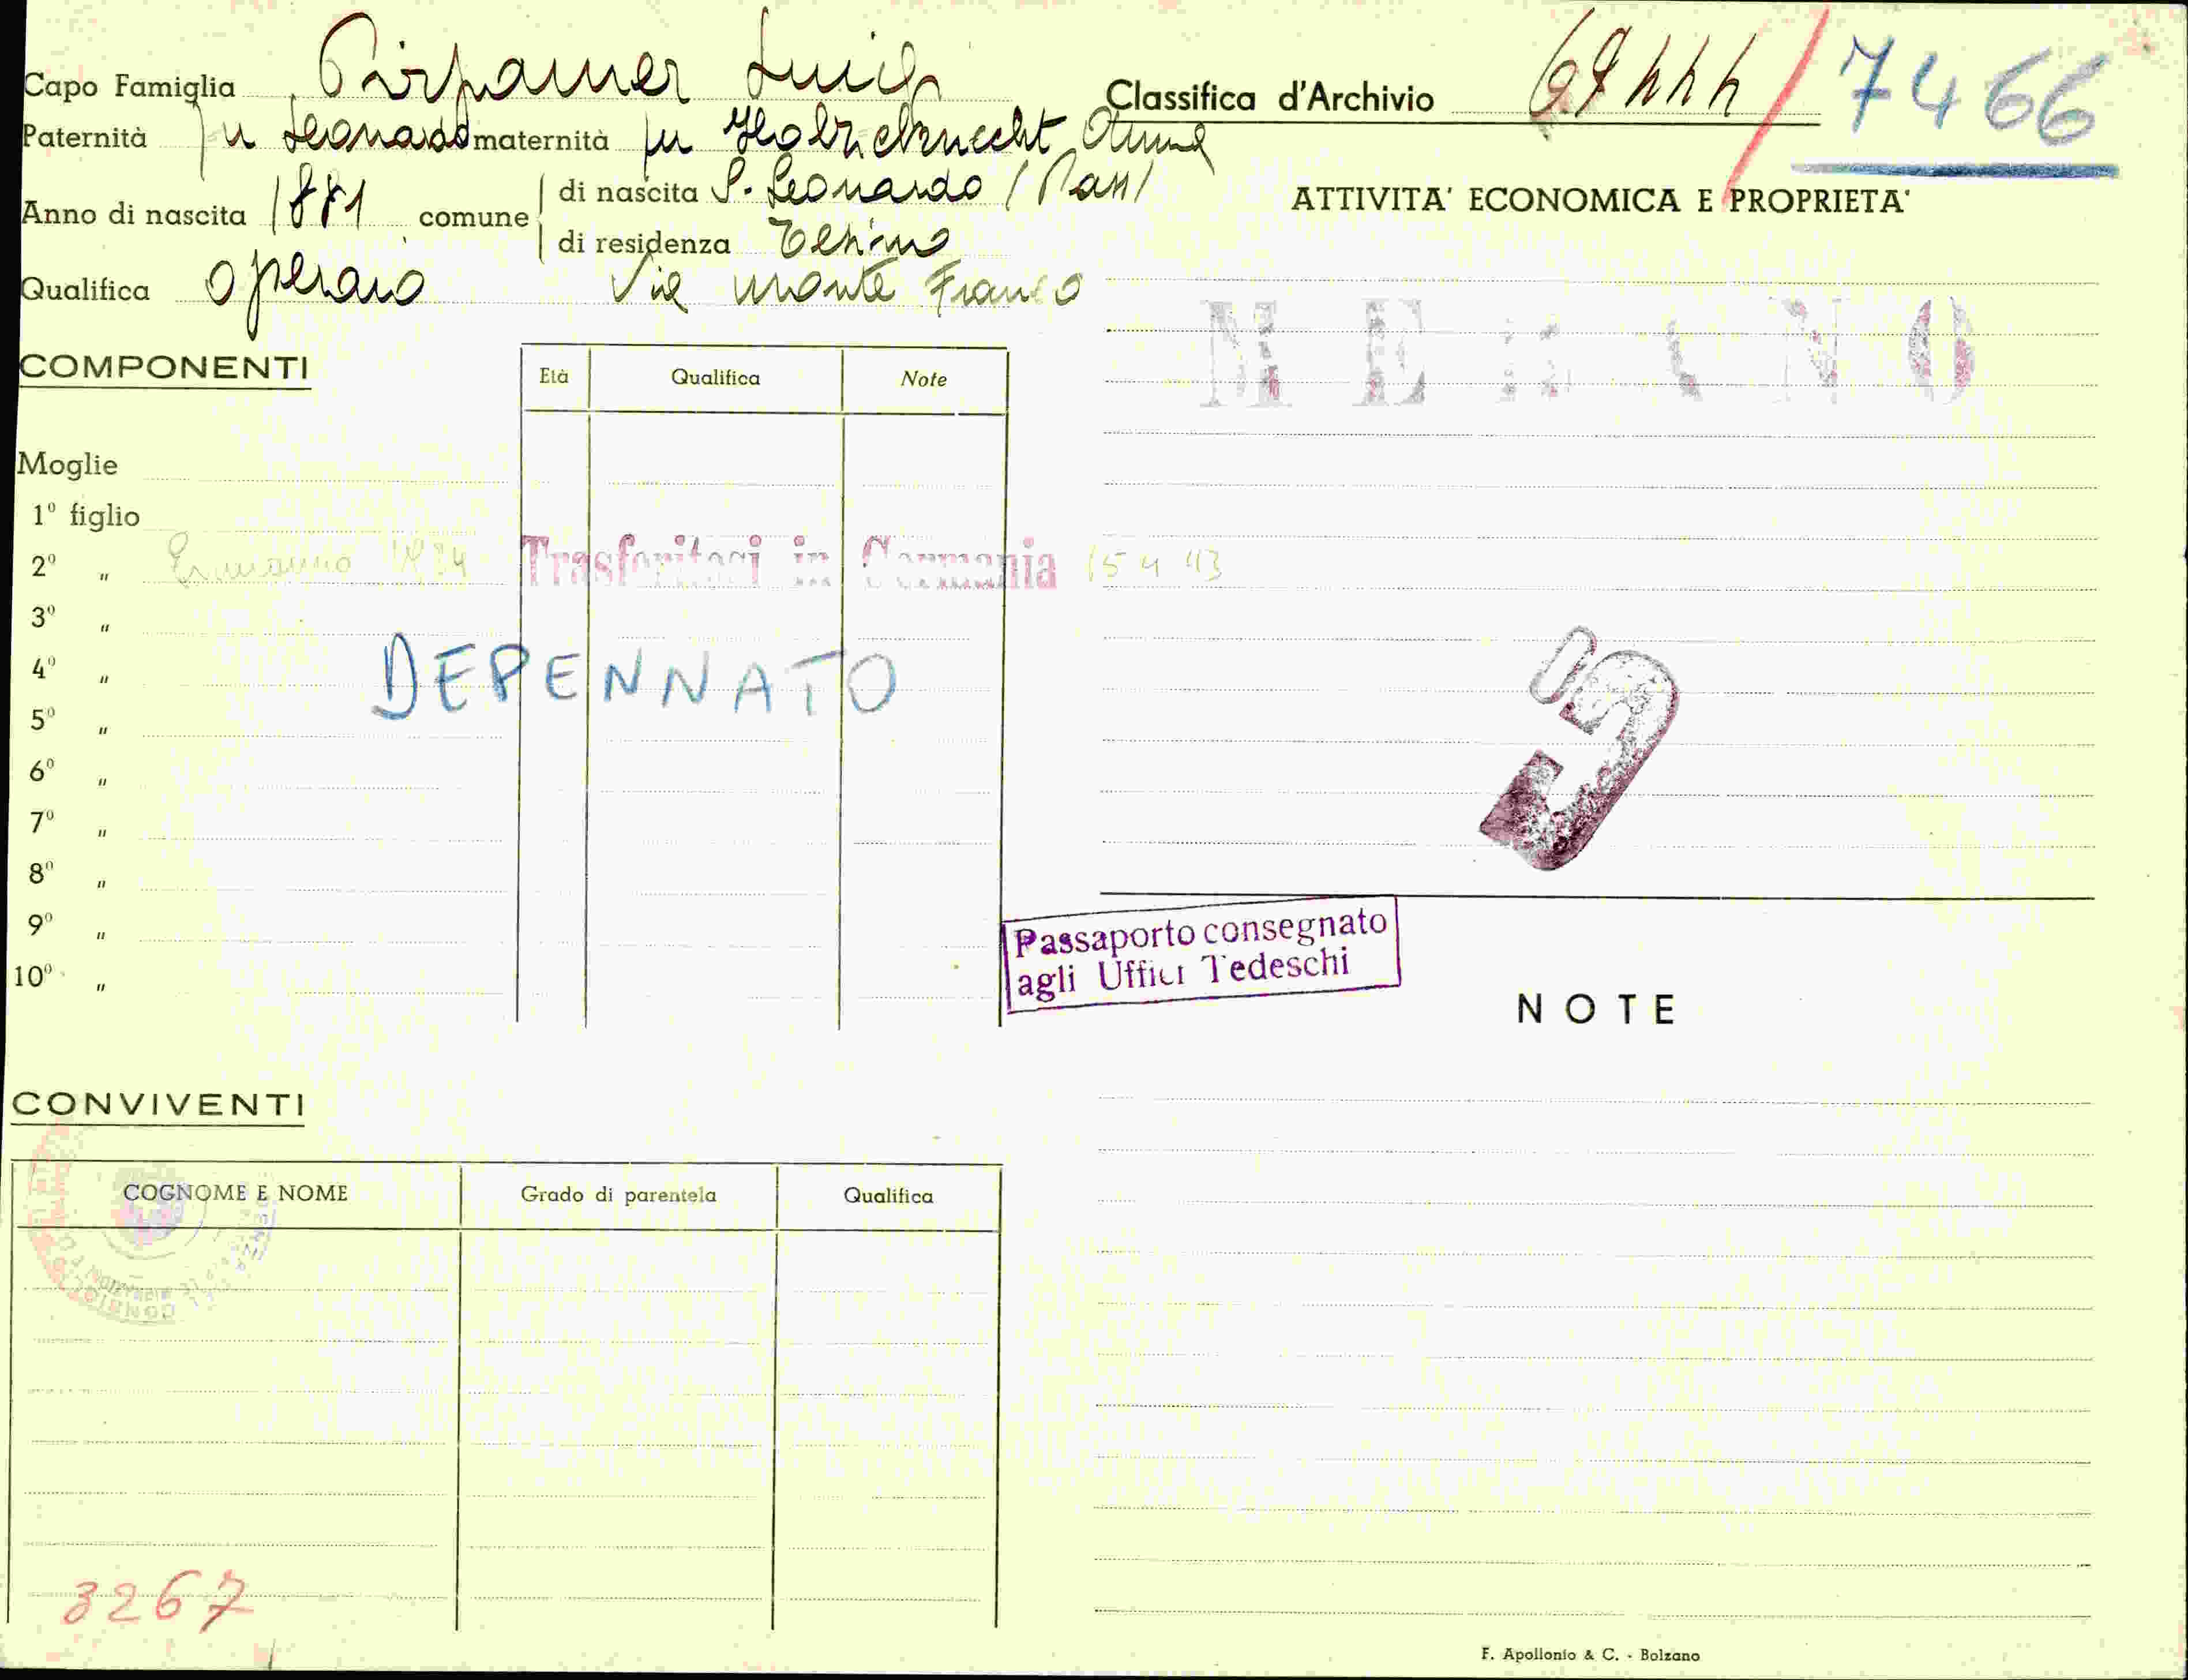 Capo Famiglia Pirpamer Luigi
Paternità fu Leonardo maternità fu Holzcknecht Anna
Anno di nascita 1881 comune di nascita S. Leonardo (Pass)
di residenza Tesimo
Qualifica operaio Via Monte Franco
COMPONENTI
Età Qualifica Note
Moglie
1º figlio
2º " Ermanno 1924 Trasferitosi in Germania 15 4 43
3º "
4º "
DEPENNATO
5º "
6º "
7º "
8º "
9º "
10º "
CONVIVENTI
COGNOME E NOME Grado di parentela Qualifica
3267
Classifica d'Archivio / 7466
ATTIVITA' ECONOMICA E PROPRIETA'
MERANO
Passaporto consegnato
agli Uffici Tedeschi
NOTE
F. Apollonio & C. - Bolzano